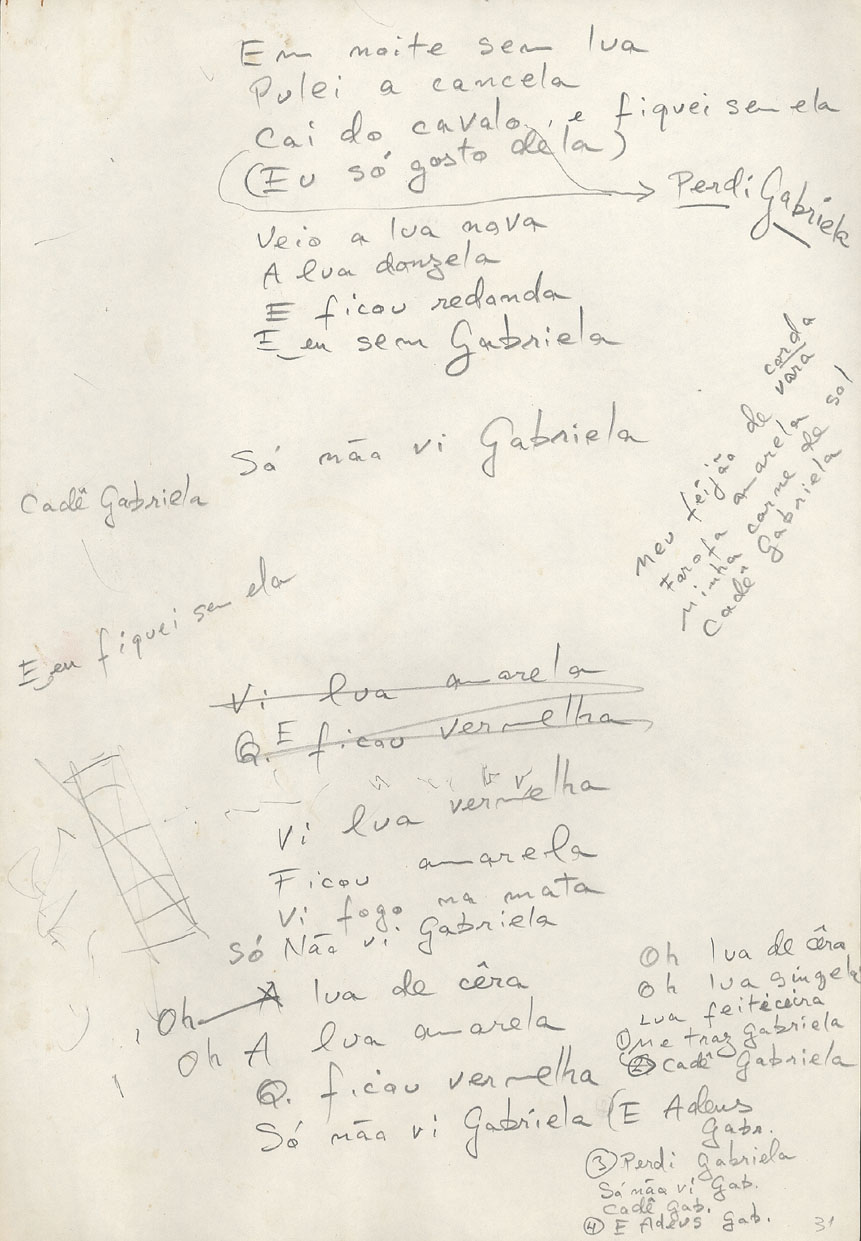 Em noite sem lua
Pulei a cancela
Cai do cavalo, e fiquei sem ela
(Eu só gosto dela)
Perdi Gabriela
Veio a lua nova
A lua donzela
E ficou redonda
E eu sem Gabriela
Só não vi Gabriela
Cadê Gabriela
E eu fiquei sem ela
Meu feijão de corda
vara
Farofa amarela
Minha carne de sol
Cadê Gabriela
Vi lua amarela
Q. E ficou vermelha
Vi lua vermelha
Ficou amarela
Vi fogo na mata
Só Não vi Gabriela
Oh A lua de cêra
Oh A lua amarela
Q. ficou vermelha
Só não vi Gabriela (E Adeus
Gabr.
Oh lua de cêra
Oh lua singela
Lua feiticeira
① Me traz Gabriela
② Cadê Gabriela
③ Perdi Gabriela
Só não vi Gab.
Cadê Gab.
④ E Adeus Gab.
31